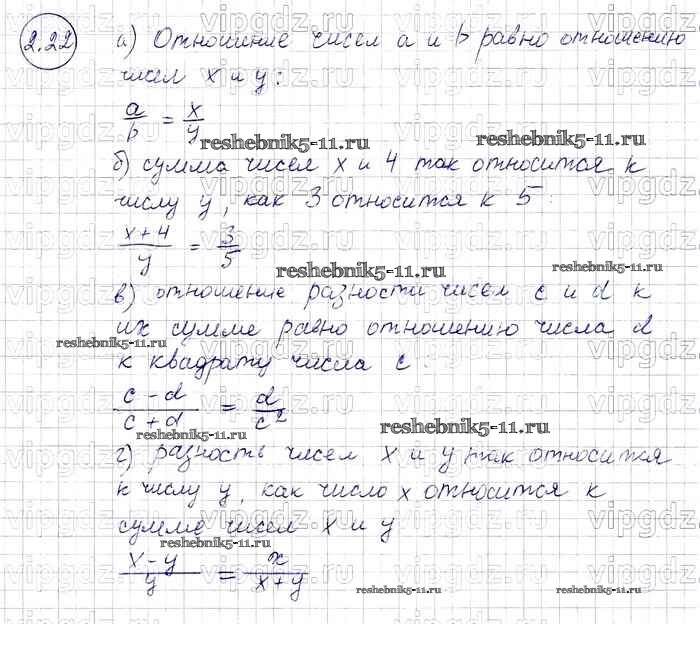 2.22
а) Отношение чисел a и b равно отношению
чисел x и y:
a/b = x/y
reshebnik5-11.ru
reshebnik5-11.ru
б) сумма чисел x и 4 так относится к
числу y, как 3 относится к 5:
(x+4)/y = 3/5
reshebnik5-11.ru
reshebnik5-11.ru
в) отношение разности чисел c и d к
их сумме равно отношению числа d
reshebnik5-11.ru
к квадрату числа c.
(c-d)/(c+d) = d/c²
reshebnik5-11.ru
reshebnik5-11.ru
г) разность чисел x и y так относится
к числу y, как число x относится к
сумме чисел x и y
reshebnik5-11.ru
(x-y)/y = x/(x+y)
reshebnik5-11.ru
reshebnik5-11.ru
vipgdz.ru